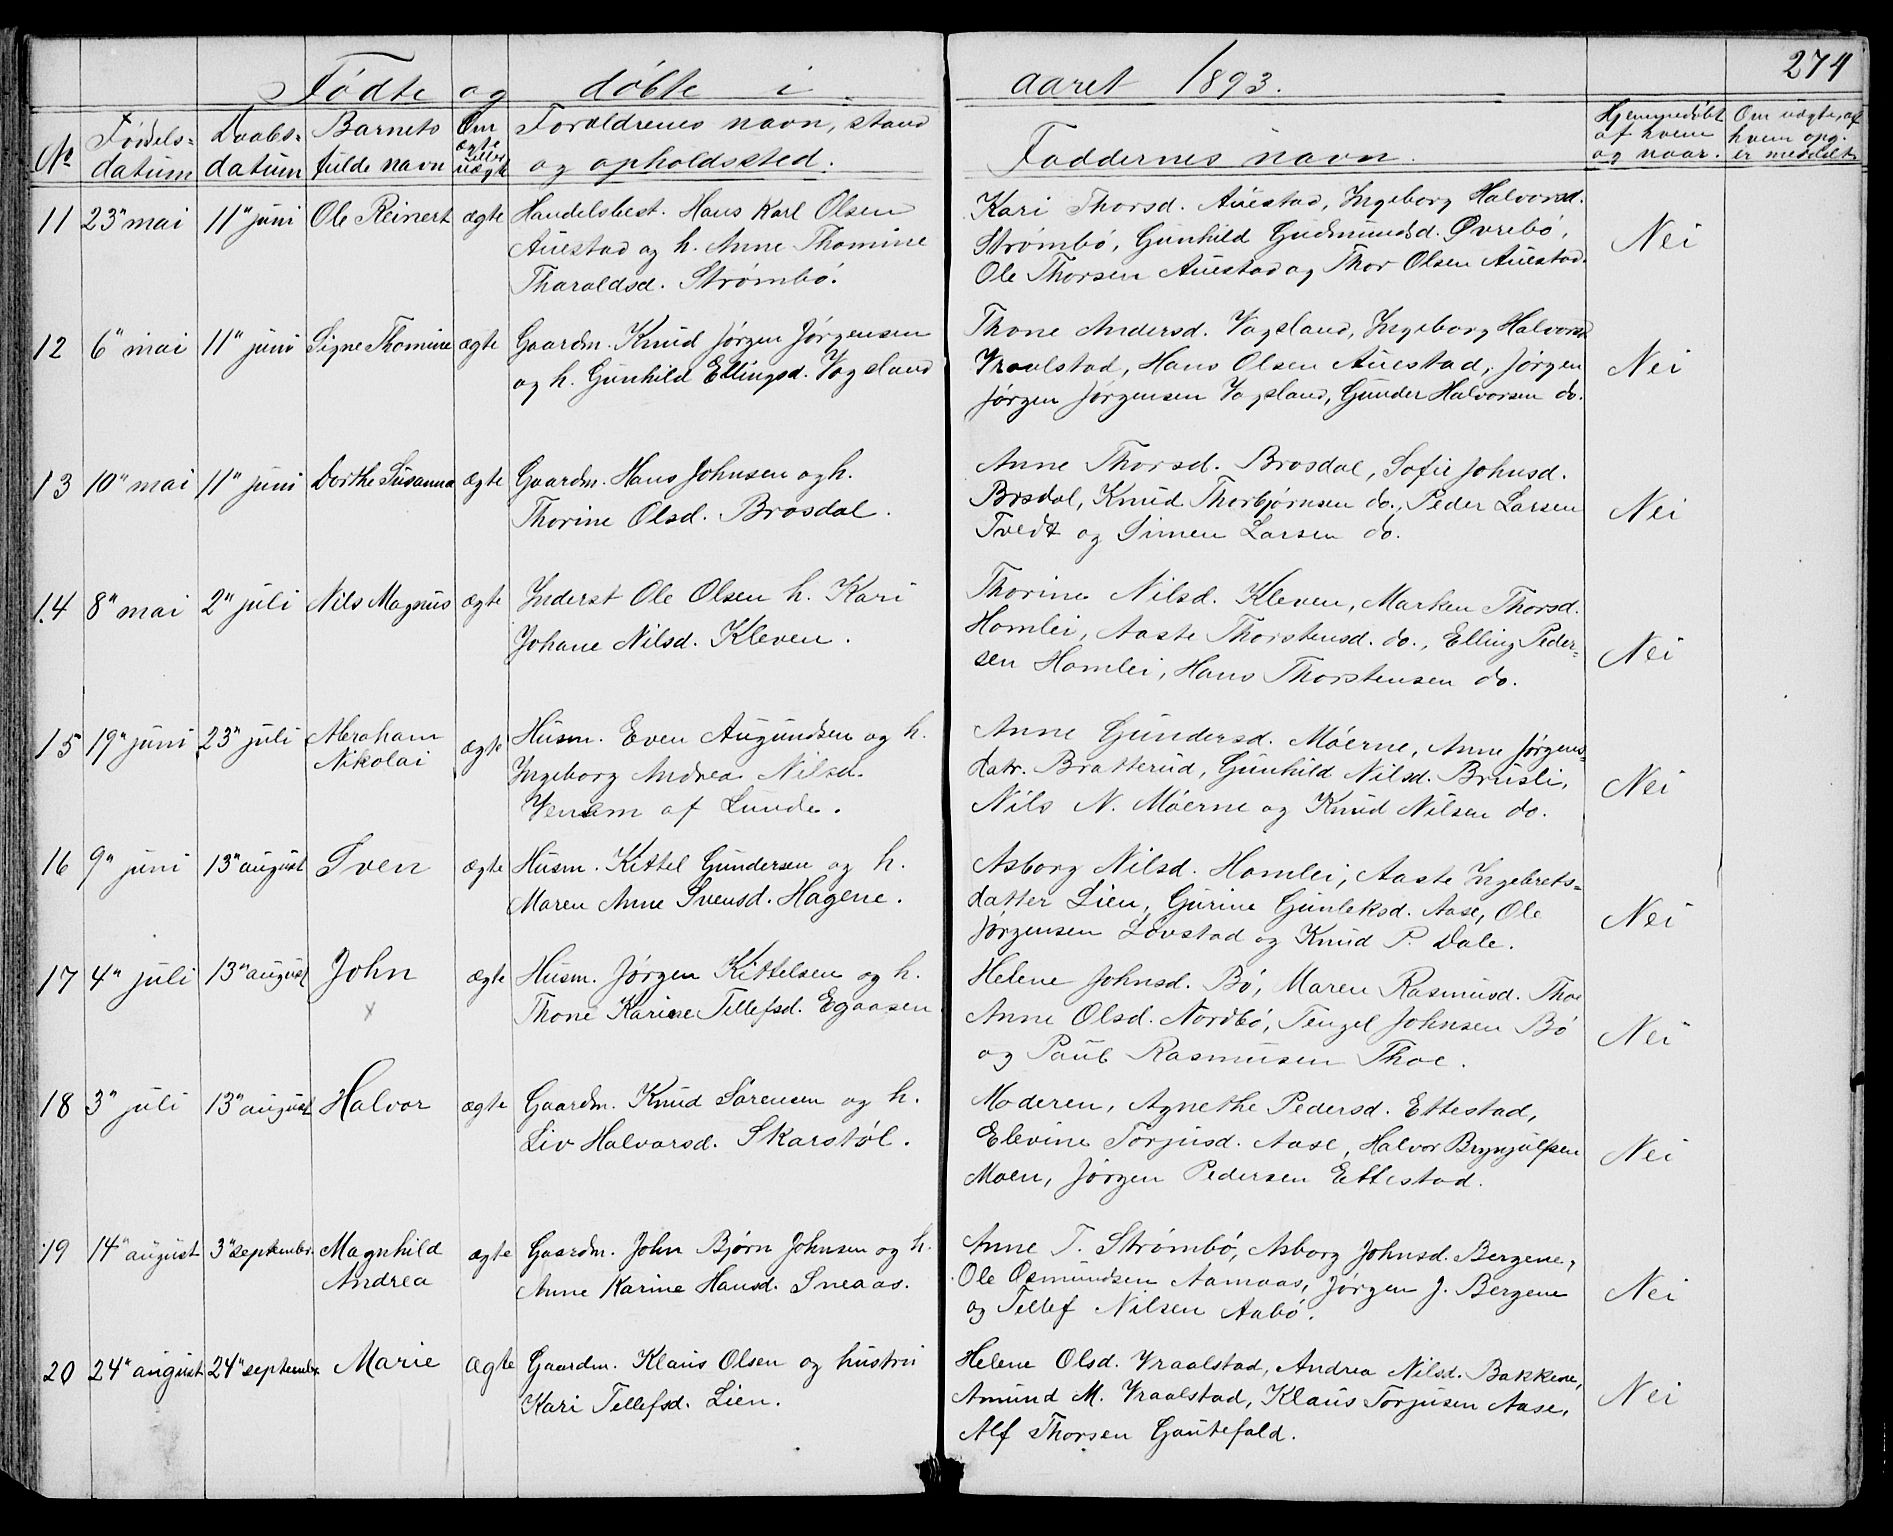 274
Fødte og døbte i aaret 1893.
No Fødsels= datum Daabs= datum Barnets fulde navn Om ægte eller uægte Forældrenes navn, stand og opholdssted. Faddernes navn. Hjemmedøbt af hvem og naar. Om uægte, af hvem opg. er meddelt
11 23" mai 11" juni Ole Reinert ægte Handelsbest. Hans Karl Olsen
Auestad og h. Anne Thomine
Tharaldsd. Strømbø.
Kari Thorsd. Auestad, Ingeborg Halvorsd.
Strømbø, Gunhild Gudmundsd. Øvrebø,
Ole Thorsen Auestad og Thor Olsen Auestad.
Nei
12 6" mai 11" juni Signe Thomine ægte Gaardm. Knud Jørgen Jørgensen
og h. Gunhild Ellingsd. Vagsland
Thone Andersd. Vagsland, Ingeborg Halvorsd
Vraalstad, Hans Olsen Auestad, Jørgen
Jørgen Jørgensen Vagsland, Gunder Halvorsen do.
Nei
13 10" mai 11" juni Dorthe Susanna ægte Gaardm. Hans Johnsen og h.
Thorine Olsd. Brosdal.
Anne Thorsd. Brosdal, Sofie Johnsd.
Brsdal, Knud Thorbjørnsen do., Peder Larsen
Tvedt og Simen Larsen do.
Nei
14 8" mai 2" juli Nils Magnus ægte Inderst Ole Olsen h. Kari
Johane Nilsd. Kleven.
Thorine Nilsd. Kleven, Marken Thorsd.
Homlei, Aaste Thorstensd. do., Elling Peder=
sen Homlei, Hans Thorstensen do.
Nei
15 19" juni 23" juli Abraham
Nikolai ægte Husm. Even Augundsen og h.
Ingeborg Andrea Nilsd.
Venem af Lunde.
Anne Gundersd. Móerne, Anne Jørgens=
datr. Bratterud, Gunhild Nilsd. Brusli,
Nils N. Móerne og Knud Nilsen do.
Nei
16 9" juni 13" august Sven ægte Husm. Kittel Gundersen og h.
Maren Anne Svensd. Hagene.
Asborg Nilsd. Homlei, Aaste Ingebrets=
datter Lien, Gurine Gunleksd. Aase, Ole
Jørgensen Lovstad og Knud P. Dale.
Nei
17 4" juli 13" august John ægte Husm. Jørgen Kittelsen og h.
Thone Karine Tellefsd. Egaasen.
x
Helene Johnsd. Bø, Maren Rasmusd. Thoe
Anne Olsd. Nordbø, Tengel Johnsen Bø
og Paul Rasmusen Thoe.
Nei
18 3" juli 13" august Halvor ægte Gaardm. Knud Sørensen og h.
Liv Halvorsd. Skarstøl.
Moderen, Agnethe Pedersd. Ettestad,
Elevine Torjusd. Aase, Halvor Brynjulfsen
Moen, Jørgen Pedersen Ettestad.
Nei
19 14" august 3" september Magnhild
Andrea ægte Gaardm. John Bjørn Johnsen og h.
Anne Karine Hansd. Sneaas.
Anne T. Strømbø, Asborg Johnsd. Bergene,
Ole Osmundsen Aamaas, Jørgen J. Bergene
og Tellef Nilsen Aabø.
Nei
20 24" august 24" september Marie ægte Gaardm. Klaus Olsen og hustru
Kari Tellefsd. Lien.
Helene Olsd. Vraalstad, Andrea Nilsd. Bakkene,
Amund M. Vraalstad, Klaus Torjusen Aase,
Alf Thorsen Gautefald.
Nei